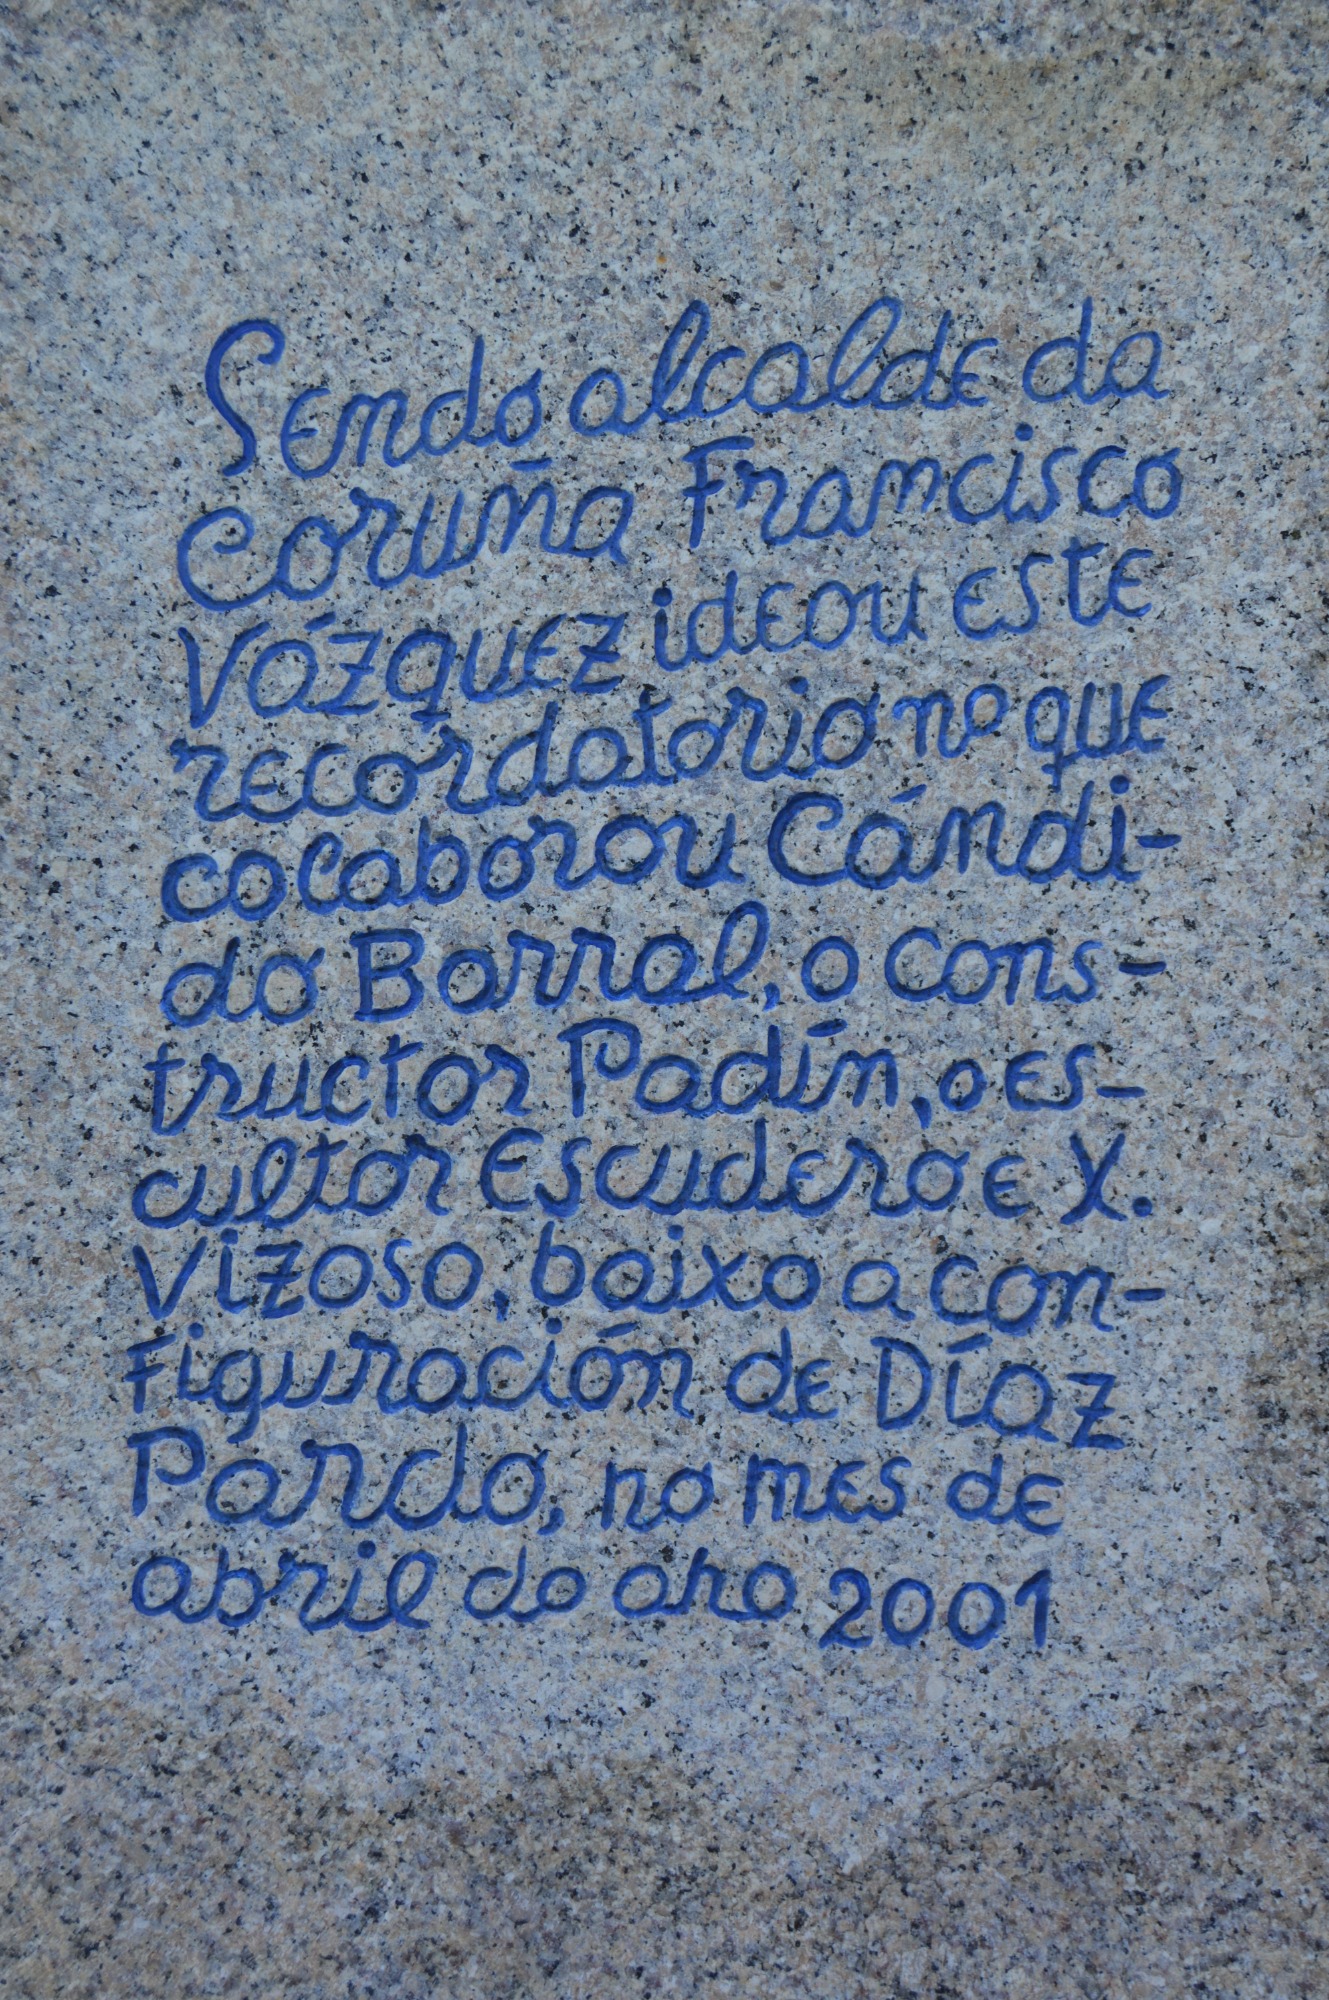 Sendo alcalde da
Coruña Francisco
Vázquez ideou este
recordatorio no que
colaborou Cándi-
do Borral, o cons-
tructor Padín, o es-
cultor Escudero e X.
Vizoso, baixo a con-
figuración de Díaz
Pardo, no mes de
abril do ano 2001